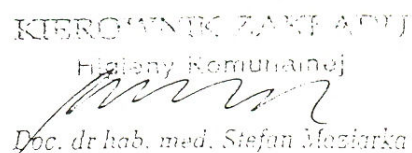 KIEROWNIK ZAKŁADU
Higieny Komunalnej
Doc. dr hab. med. Stefan Maziarka